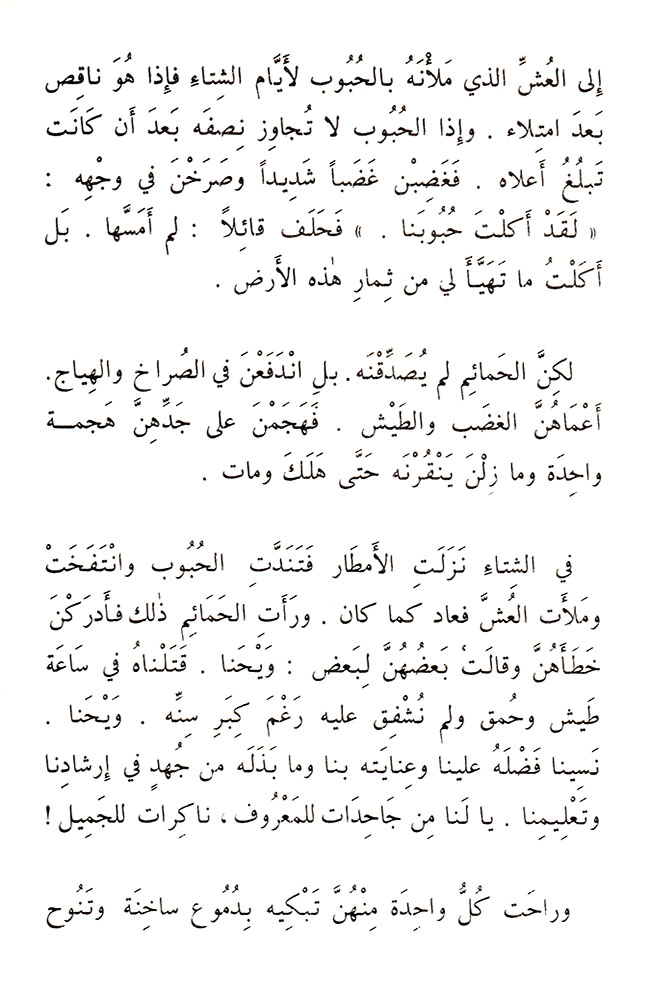 إِلى العُشِّ الذي مَلأْنَهُ بالحُبُوب لأَيَّام الشِتاءِ فإِذا هُوَ ناقِص
بَعدَ امتِلاء . وإِذا الحُبُوب لا تُجاوِز نِصفَه بَعدَ أَن كَانَت
تَبلُغُ أَعلاه . فَغَضِبْن غَضَباً شَدِيداً وصَرَخْنَ في وجْهِه :
« لَقَدْ أَكلْتَ حُبُوبَنا . » فَحَلَف قائِلاً : لم أَمَسَّها . بَل
أَكَلْتُ ما تَهَيَّأَ لي من ثِمارِ هٰذه الأَرض .
لكِنَّ الحَمائِم لم يُصَدِّقْنَه. بلِ انْدَفَعْنَ في الصُراخ والهِياج.
أَعْمَاهُنَّ الغضَب والطَيْش . فَهَجَمْنَ على جَدِّهِنَّ هَجمـــة
واحِدَة وما زِلْنَ يَنْقُرْنَه حَتَّى هَلَكَ ومات .
في الشِتاءِ نَزَلَتِ الأَمطَار فَتَنَدَّتِ الحُبُوب وانْتَفَخَتْ
ومَلأَت العُشَّ فعاد كما كان . ورأَتِ الحَمَائِم ذٰلك فأَدرَكْنَ
خَطَأَهُنَّ وقالَتْ بَعضُهُنَّ لِبَعض : وَيْحَنا . قَتَلْناهُ في سَاعَة
طَيش وحُمق ولم نُشْفِق عليه رَغْمَ كِبَرِ سِنِّه . وَيْحَنا .
نَسِينا فَضْلَهُ علينا وعِنايَته بنا وما بَذَلَه من جُهدٍ في إِرشادِنا
وتَعْلِيمِنا . يا لَنا مِن جَاحِدَات للمَعْرُوف، ناكِرات للجَمِيل !
وراحَت كُلُّ واحِدَة مِنْهُنَّ تَبْكِيه بِدُمُوع ساخِنَة وتَنُوح